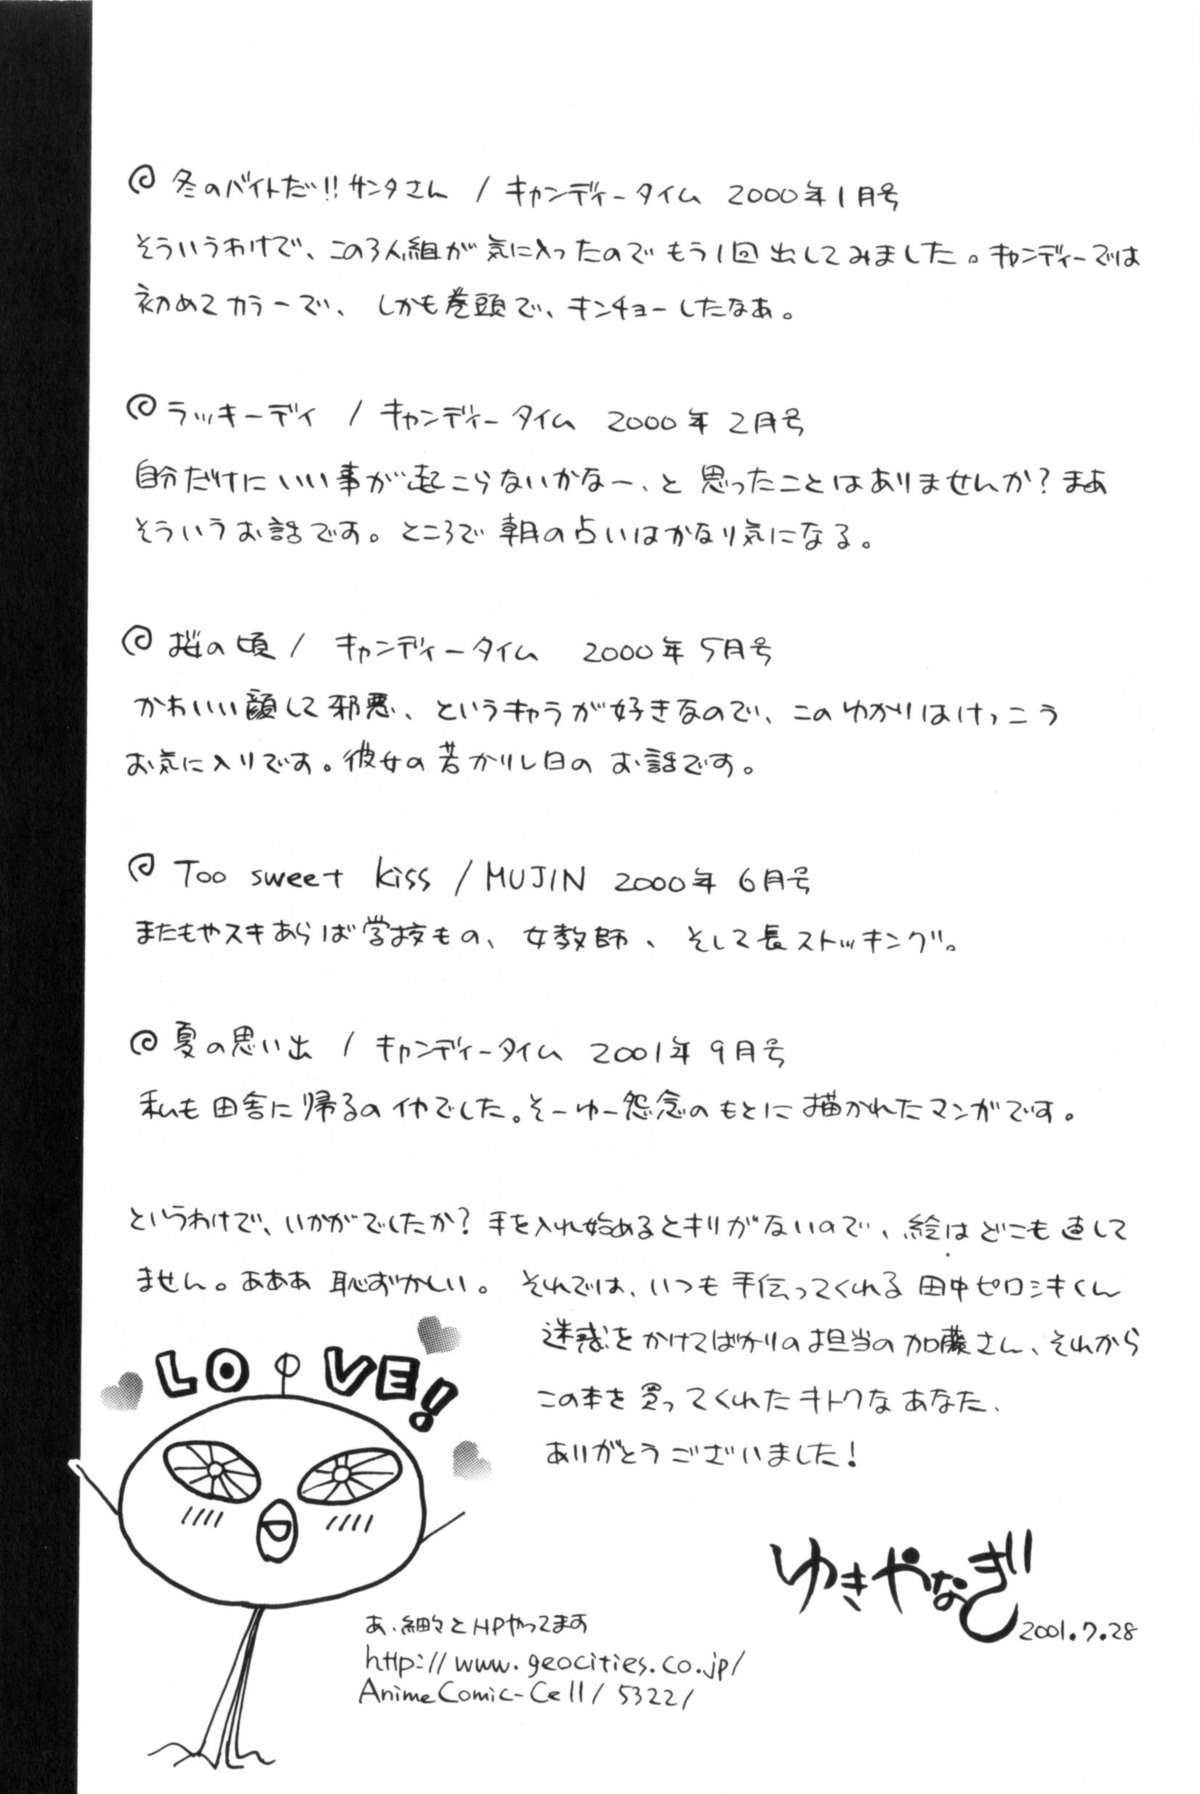 冬のバイトだ!!サンタさん / キャンディータイム 2000年1月号
そういうわけで、この3人組が気に入ったのでもう1回出してみました。キャンディーでは
初めてカラーで、しかも巻頭で、キンチョーしたなあ。
ラッキーデイ / キャンディータイム 2000年2月号
自分だけにいい事が起こらないかなー、と思ったことはありませんか?まあ
そういうお話です。ところで朝の占いはかなり気になる。
桜の頃 / キャンディータイム 2000年5月号
かわいい顔して邪悪、というキャラが好きなので、このゆかりはけっこう
お気に入りです。彼女の若かりし日のお話です。
Too sweet kiss / MUJIN 2000年6月号
またもやスキあらば学校もの、女教師、そして長ストッキング。
夏の思い出 / キャンディータイム 2001年9月号
私も田舎に帰るのイヤでした。そーゆー怨念のもとに描かれたマンガです。
というわけで、いかがでしたか?手を入れ始めるとキリがないので、絵はどこも直して
ません。あああ恥ずかしい。それでは、いつも手伝ってくれる田中ゼロシキくん
迷惑をかけてばかりの担当の加藤さん、それから
この本を買ってくれたキトクなあなた、
ありがとうございました!
LOVE!
ゆきやなぎ
2001.7.28
あ、細々とHPやってます
http://www.geocities.co.jp/
AnimeComic-Cell/5322/